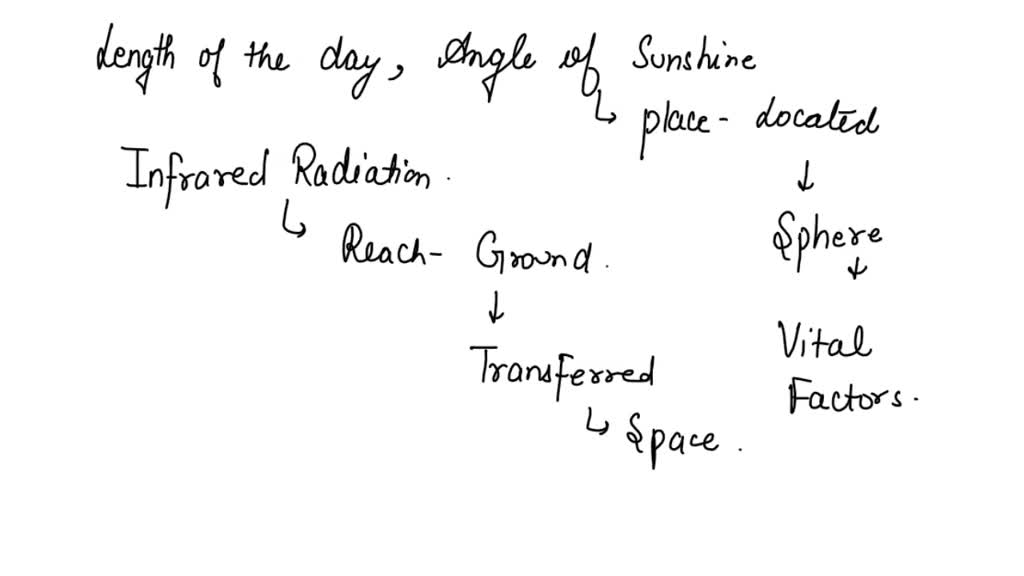 Length of the day, Angle of Sunshine
↳ place - Located
Infrared Radiation.
↓
↳ Reach - Ground.
Sphere
↓
↓
Transferred
Vital
Factors.
↳ Space.